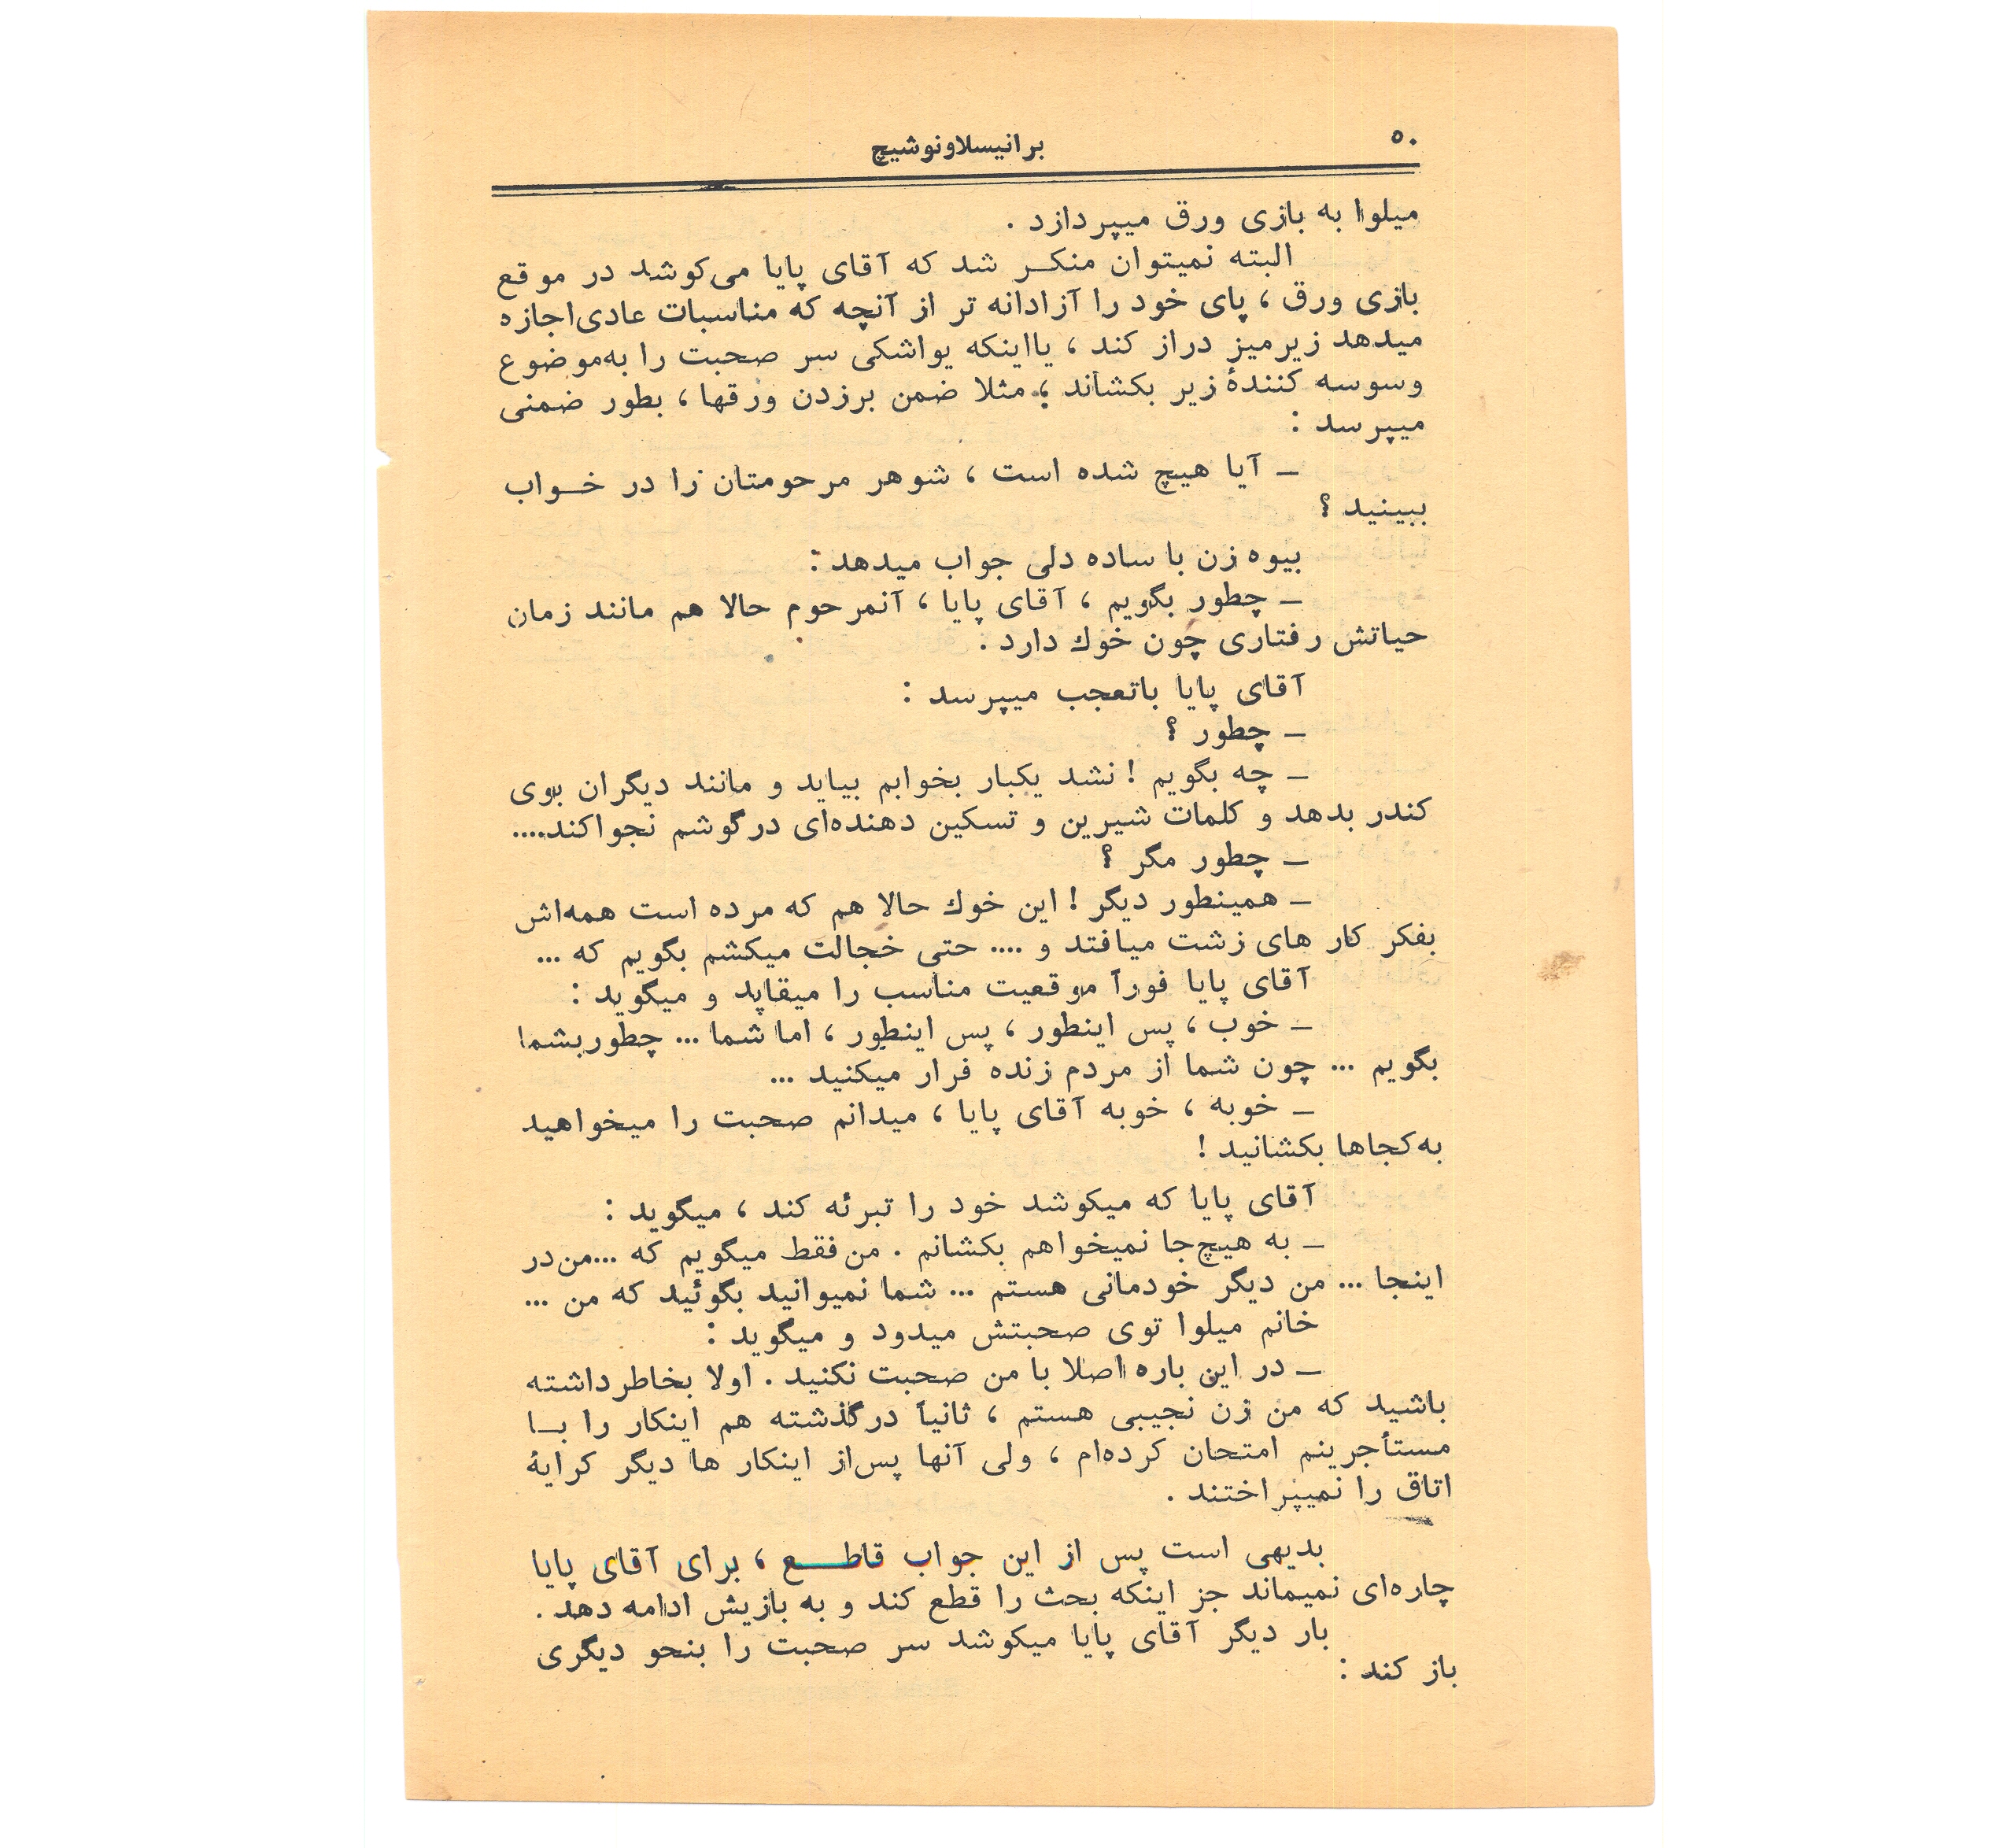 ۵۰
برانیسلاونوشیچ
میلوا به بازی ورق میپردازد .
البته نمیتوان منکر شد که آقای پایا می‌کوشد در موقع
بازی ورق ، پای خود را آزادانه تر از آنچه که مناسبات عادی‌اجازه
میدهد زیرمیز دراز کند ، یااینکه یواشکی سر صحبت را به‌موضوع
وسوسه کنندهٔ زیر بکشاند ؛ مثلا ضمن برزدن ورقها ، بطور ضمنی
میپرسد :
ـ آیا هیچ شده است ، شوهر مرحومتان را در خـواب
ببینید ؟
بیوه زن با ساده دلی جواب میدهد :
ـ چطور بگویم ، آقای پایا ، آنمرحوم حالا هم مانند زمان
حیاتش رفتاری چون خوك دارد .
آقای پایا باتعجب میپرسد :
ـ چطور ؟
ـ چه بگویم ! نشد یکبار بخوابم بیاید و مانند دیگران بوی
کندر بدهد و کلمات شیرین و تسکین دهنده‌ای درگوشم نجواکند....
ـ چطور مگر ؟
ـ همینطور دیگر ! این خوك حالا هم که مرده است همه‌اش
بفکر کار های زشت میافتد و .... حتی خجالت میکشم بگویم که ...
آقای پایا فوراً موقعیت مناسب را میقاپد و میگوید :
ـ خوب ، پس اینطور ، پس اینطور ، اما شما ... چطوربشما
بگویم ... چون شما از مردم زنده فرار میکنید ...
ـ خوبه ، خوبه آقای پایا ، میدانم صحبت را میخواهید
به‌کجاها بکشانید !
آقای پایا که میکوشد خود را تبرئه کند ، میگوید :
ـ به هیچ‌جا نمیخواهم بکشانم . من‌فقط میگویم که ...من‌در
اینجا ... من دیگر خودمانی هستم ... شما نمیوانید بگوئید که من ...
خانم میلوا توی صحبتش میدود و میگوید :
ـ در این باره اصلا با من صحبت نکنید . اولا بخاطرداشته
باشید که من زن نجیبی هستم ، ثانیاً درگذشته هم اینکار را بـا
مستأجرینم امتحان کرده‌ام ، ولی آنها پس‌از اینکار ها دیگر کرایهٔ
اتاق را نمیپراختند .
بدیهی است پس از این جواب قاطـع ، برای آقای پایا
چاره‌ای نمیماند جز اینکه بحث را قطع کند و به بازیش ادامه دهد .
بار دیگر آقای پایا میکوشد سر صحبت را بنحو دیگری
باز کند :